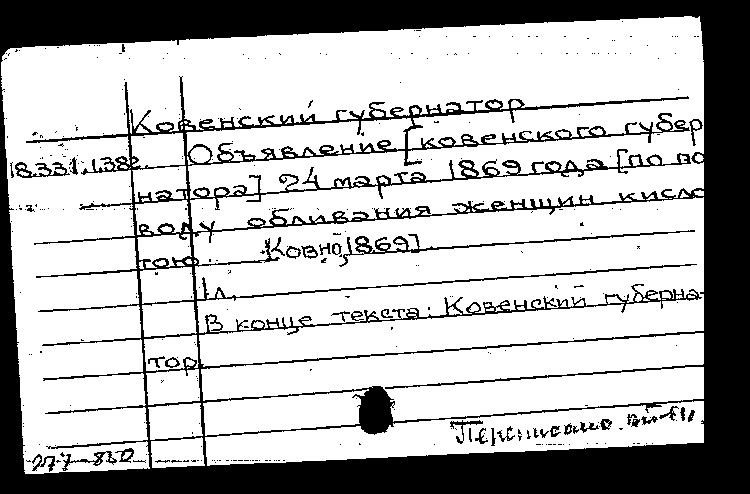 Ковенский губернатор
18.331.1.382. Объявление [ковенского губер
натора] 24 марта 1869 года [по по
воду обливания женщин кисло
тою. Ковно, 1869].
1 л.
В конце текста: Ковенский губерна-
тор.
Переписано.
277-830